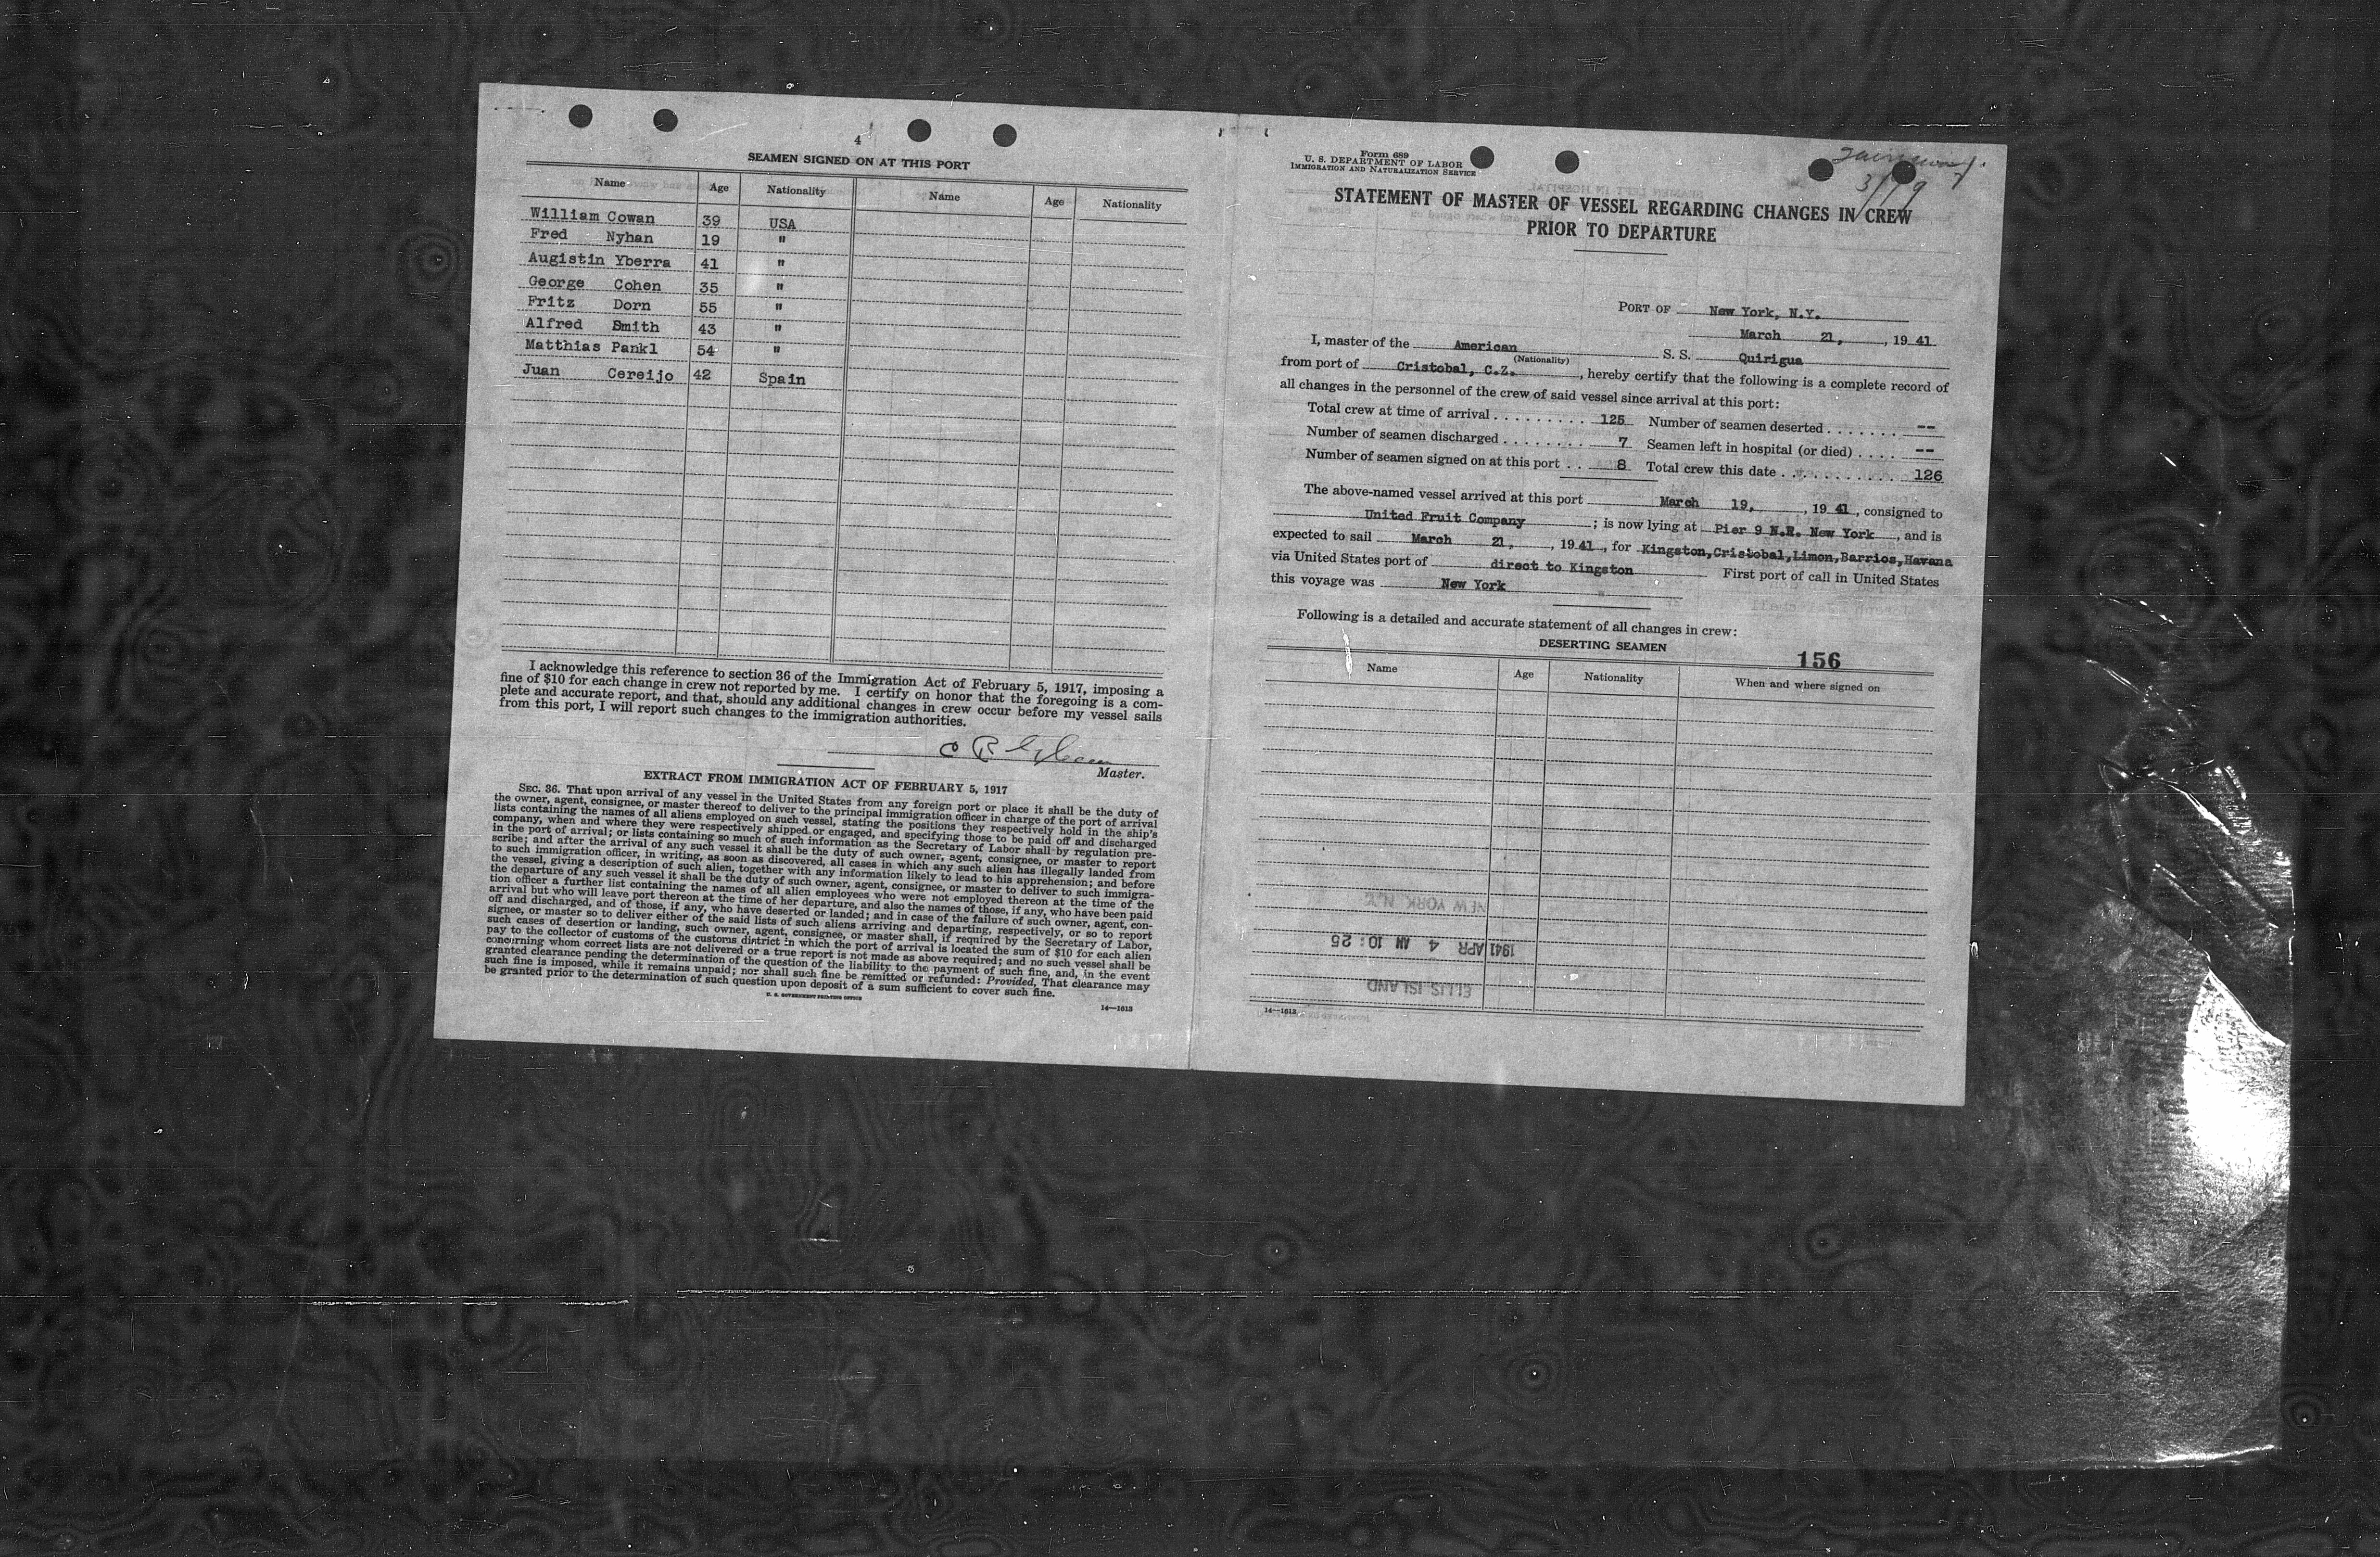 4
SEAMEN SIGNED ON AT THIS PORT
Name Age Nationality Name Age Nationality
William Cowan 39 USA
Fred Nyhan 19 "
Augistin Yberra 41 "
George Cohen 35 "
Fritz Dorn 55 "
Alfred Smith 43 "
Matthias Pankl 54 "
Juan Cereijo 42 Spain
I acknowledge this reference to section 36 of the Immigration Act of February 5, 1917, imposing a
fine of $10 for each change in crew not reported by me. I certify on honor that the foregoing is a com-
plete and accurate report, and that, should any additional changes in crew occur before my vessel sails
from this port, I will report such changes to the immigration authorities.
Master.
EXTRACT FROM IMMIGRATION ACT OF FEBRUARY 5, 1917
SEC. 36. That upon arrival of any vessel in the United States from any foreign port or place it shall be the duty of
the owner, agent, consignee, or master thereof to deliver to the principal immigration officer in charge of the port of arrival
lists containing the names of all aliens employed on such vessel, stating the positions they respectively hold in the ship's
company, when and where they were respectively shipped or engaged, and specifying those to be paid off and discharged
in the port of arrival; or lists containing so much of such information as the Secretary of Labor shall by regulation pre-
scribe; and after the arrival of any such vessel it shall be the duty of such owner, agent, consignee, or master to report
to such immigration officer, in writing, as soon as discovered, all cases in which any such alien has illegally landed from
the vessel, giving a description of such alien, together with any information likely to lead to his apprehension; and before
the departure of any such vessel it shall be the duty of such owner, agent, consignee, or master to deliver to such immigra-
tion officer a further list containing the names of all alien employees who were not employed thereon at the time of the
arrival but who will leave port thereon at the time of her departure, and also the names of those, if any, who have been paid
off and discharged, and of those, if any, who have deserted or landed; and in case of the failure of such owner, agent, con-
signee, or master so to deliver either of the said lists of such aliens arriving and departing, respectively, or so to report
such cases of desertion or landing, such owner, agent, consignee, or master shall, if required by the Secretary of Labor,
pay to the collector of customs of the customs district in which the port of arrival is located the sum of $10 for each alien
concerning whom correct lists are not delivered or a true report is not made as above required; and no such vessel shall be
granted clearance pending the determination of the question of the liability to the payment of such fine, and, in the event
such fine is imposed, while it remains unpaid; nor shall such fine be remitted or refunded: Provided, That clearance may
be granted prior to the determination of such question upon deposit of a sum sufficient to cover such fine.
U. S. GOVERNMENT PRINTING OFFICE
14—1613
Form 689
U. S. DEPARTMENT OF LABOR
IMMIGRATION AND NATURALIZATION SERVICE
3/19
STATEMENT OF MASTER OF VESSEL REGARDING CHANGES IN CREW
PRIOR TO DEPARTURE
PORT OF New York, N.Y.
March 21, , 19 41
I, master of the American S. S. Quirigua
(Nationality)
from port of Cristobal, C.Z. , hereby certify that the following is a complete record of
all changes in the personnel of the crew of said vessel since arrival at this port:
Total crew at time of arrival . . . . . . . . 125 Number of seamen deserted . . . . . . . --
Number of seamen discharged . . . . . . . . 7 Seamen left in hospital (or died) . . . . --
Number of seamen signed on at this port . . 8 Total crew this date . . . . . . . . . . . 126
The above-named vessel arrived at this port March 19, , 19 41, consigned to
United Fruit Company ; is now lying at Pier 9 N.R. New York , and is
expected to sail March 21, , 19 41, for Kingston,Cristobal,Limon,Barrios,Havana
via United States port of direct to Kingston First port of call in United States
this voyage was New York
Following is a detailed and accurate statement of all changes in crew:
DESERTING SEAMEN
156
Name Age Nationality When and where signed on
NEW YORK N.Y.
1941 APR 4 AM 10:25
ELLIS ISLAND
14—1613